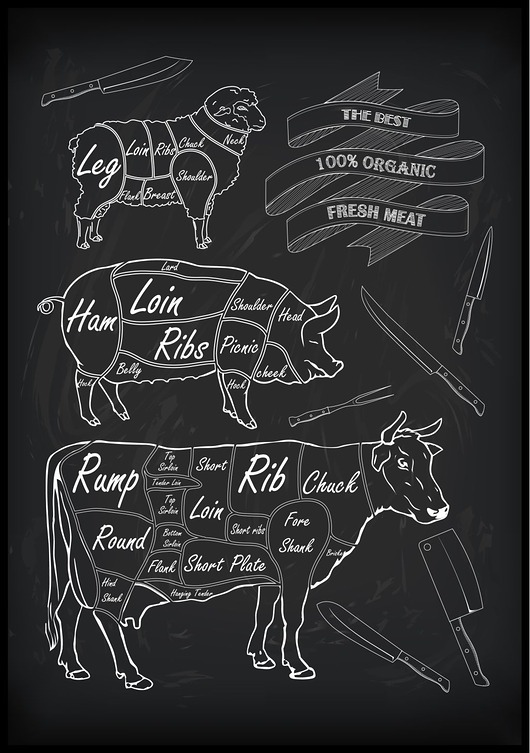 THE BEST
100% ORGANIC
FRESH MEAT
Leg
Loin
Ribs
Chuck
Neck
Shoulder
Flank
Breast
Lard
Ham
Loin
Ribs
Shoulder
Head
Picnic
cheek
Belly
Hock
Hock
Rump
Top
Sirloin
Tender Loin
Top
Sirloin
Bottom
Sirloin
Short
Loin
Rib
Chuck
Round
Short ribs
Fore
Shank
Flank
Short Plate
Hind
Shank
Hanging Tender